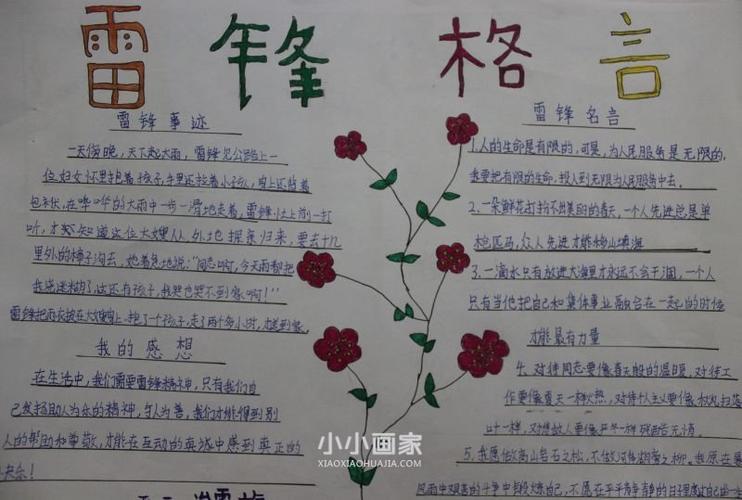 雷锋格言
雷锋事迹
一天傍晚，天下起大雨，雷锋见公路上一
位妇女怀里抱着孩子，手里还拉着小孩，肩上还背着
包袱，在哗哗的大雨中一步一滑地走着，雷锋上前一打
听，才知道这位大嫂从外地探亲归来，要去十几
里外的樟子沟去，她着急地说："同志啊，今天雨都把
我浇迷糊了，这还有孩子，我哭也哭不到家啊！"
雷锋把雨衣披在大嫂身上，抱了一个孩子，走了两个多小时，才送到家。
我的感想
在生活中，我们需要雷锋精神，只有我们自
己发扬助人为乐的精神，与人为善，我们才能得到别
人的帮助和尊敬，才能在互动的真诚中感到真正的
快乐！
雷锋名言
1.人的生命是有限的，可是，为人民服务是无限的，
我要把有限的生命，投入到无限为人民服务中去。
2.一朵鲜花打扮不出美丽的春天，一个人先进总是单
枪匹马，众人先进才能移山填海
3.一滴水只有放进大海里才永远不会干涸，一个人
只有当他把自己和集体事业融合在一起的时候
才能最有力量
4.对待同志要像春天般的温暖，对待工
作要像夏天一样火热，对待个人主义要像秋风扫落
叶一样，对待敌人要像严冬一样残酷无情。
5.我愿做高山岩石之松，不做河岸湖旁之柳。我愿在暴
风雨中艰苦的斗争中锻炼自己，不愿在平平静静的日子里度过自己的一
小小画家
XIAOXIAOHUAJIA.COM